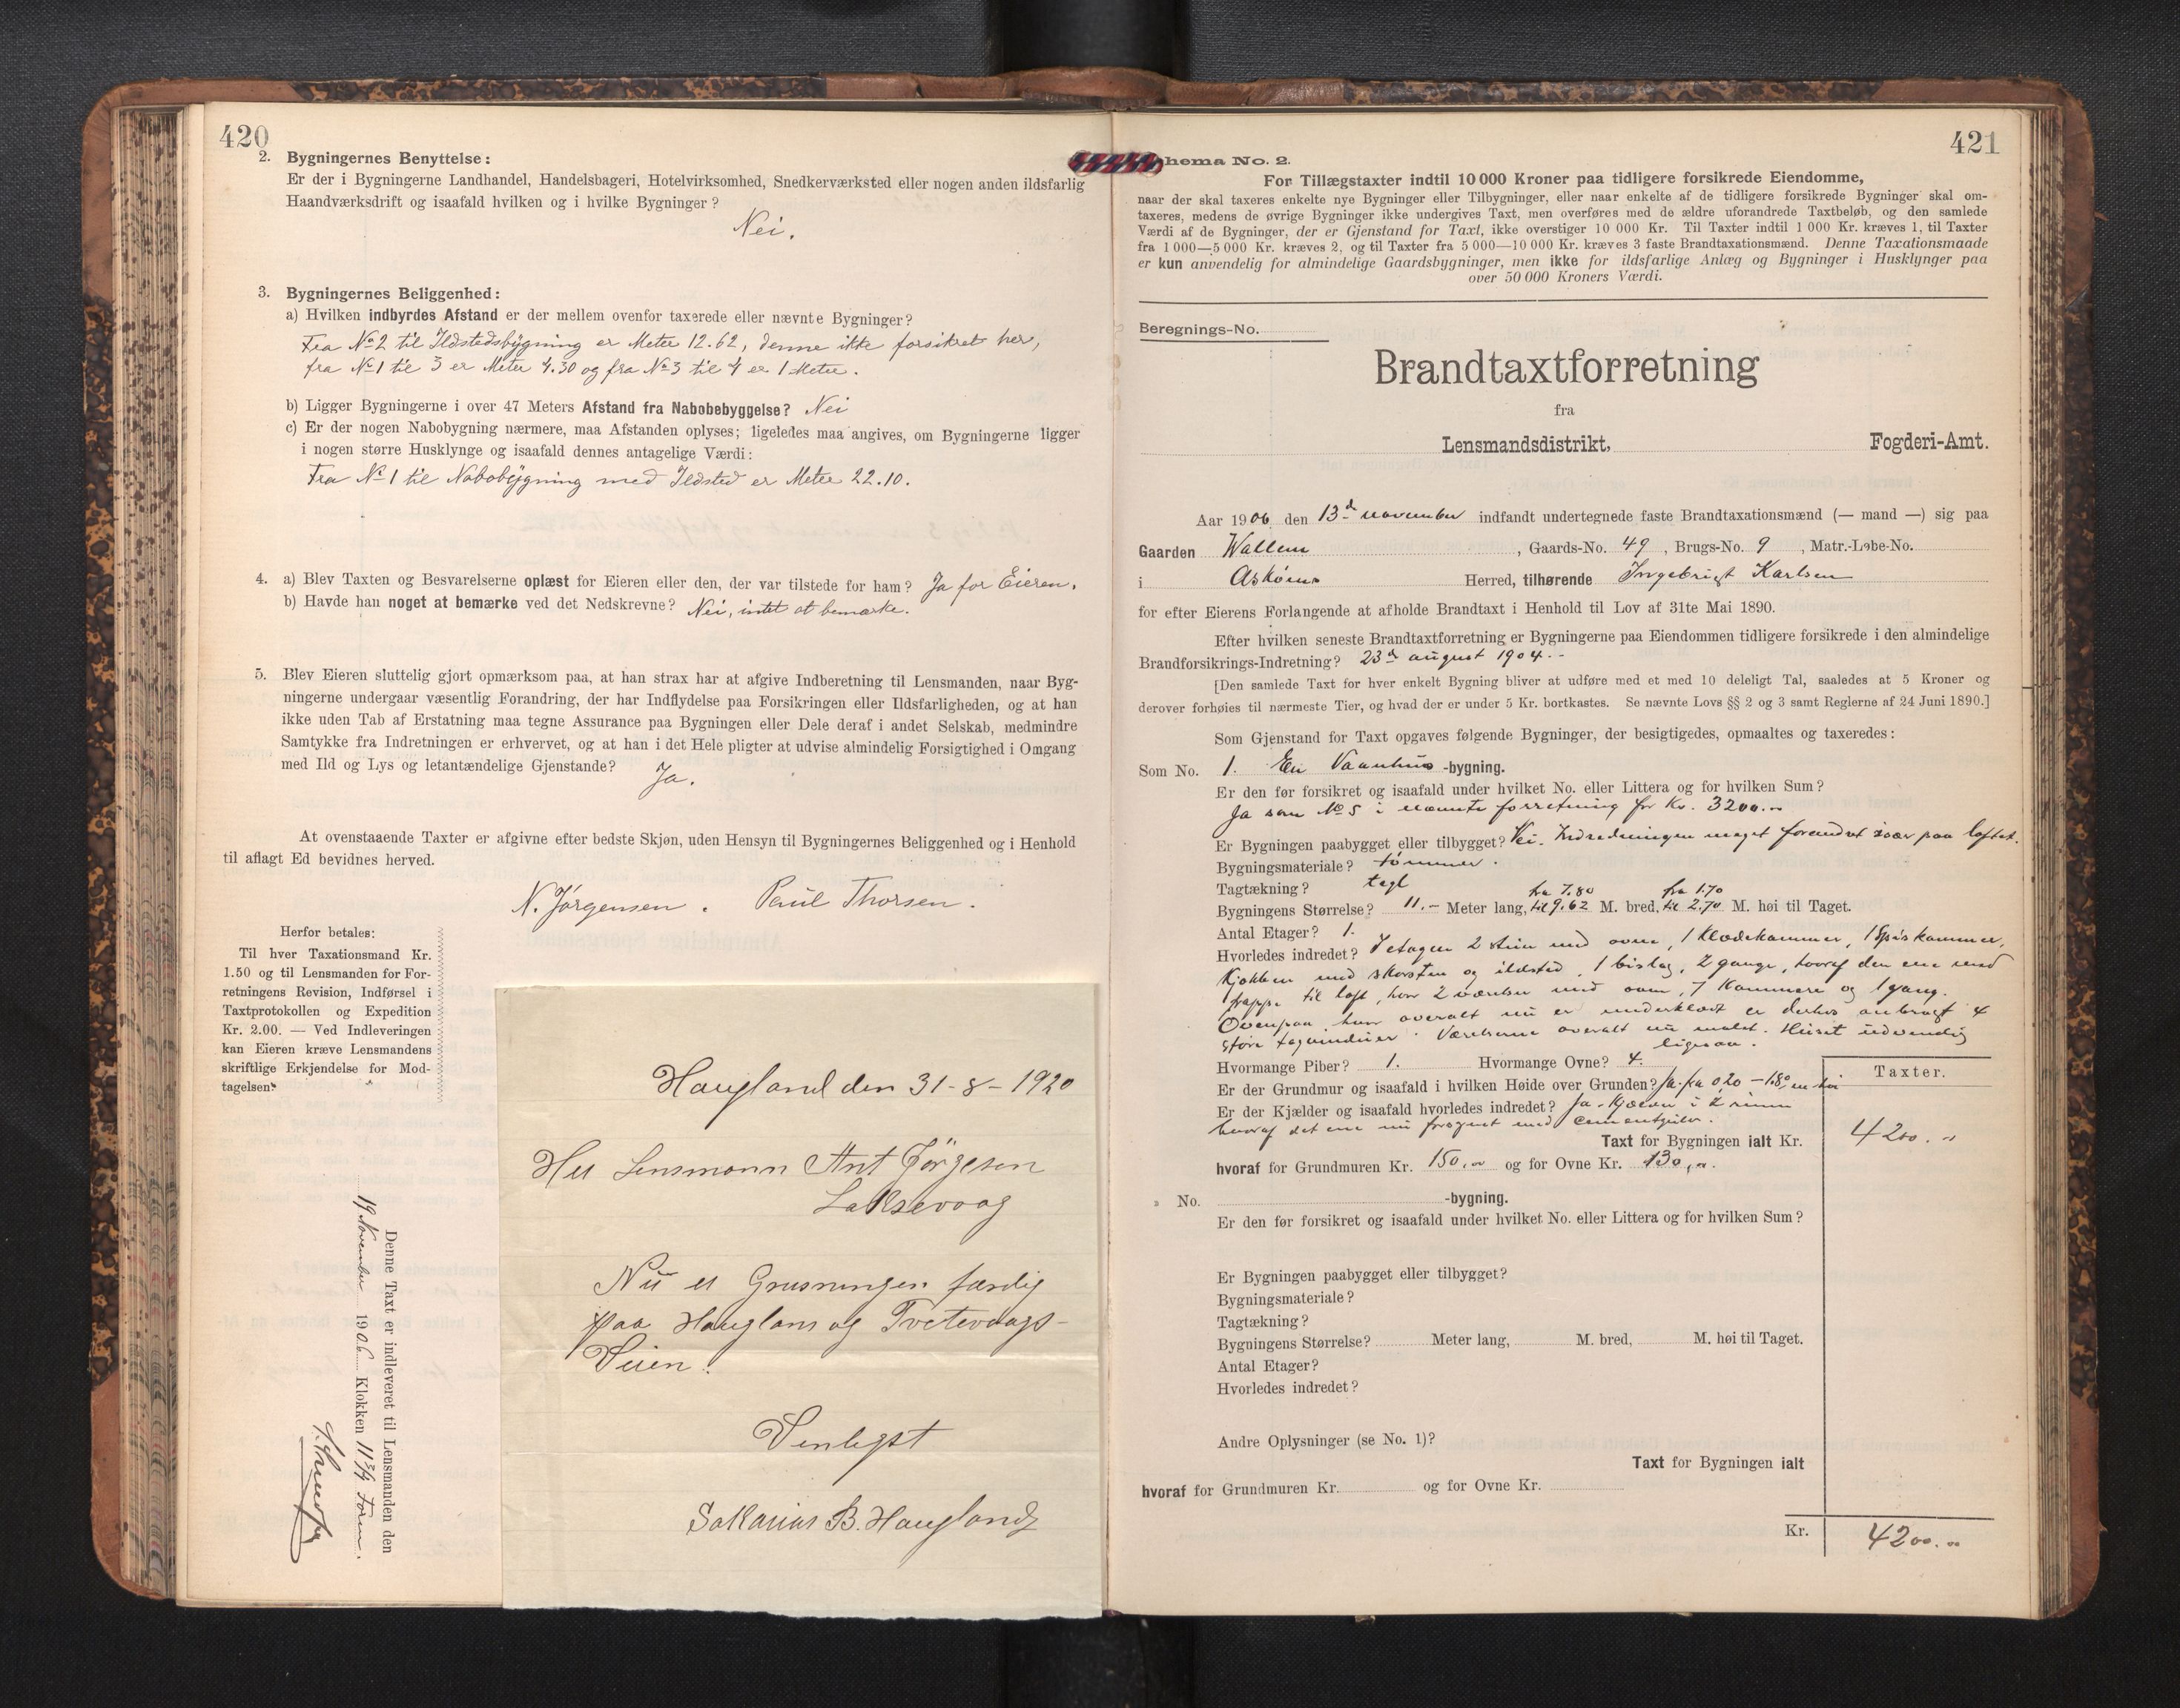 420
2. Bygningernes Benyttelse:
Er der i Bygningerne Landhandel, Handelsbageri, Hotelvirksomhed, Snedkerværksted eller nogen anden ildsfarlig
Haandværksdrift og isaafald hvilken og i hvilke Bygninger?
Nei.
3. Bygningernes Beliggenhed:
a) Hvilken indbyrdes Afstand er der mellem ovenfor taxerede eller nævnte Bygninger?
Fra No 2 til Ildstedsbygning er Meter 12.62, denne ikke forsikret her,
fra No 1 til 3 er Meter 4.30 og fra No 3 til 4 er 1 Meter.
b) Ligger Bygningerne i over 47 Meters Afstand fra Nabobebyggelse? Nei
c) Er der nogen Nabobygning nærmere, maa Afstanden oplyses; ligeledes maa angives, om Bygningerne ligger
i nogen større Husklynge og isaafald dennes antagelige Værdi:
Fra No 1 til Nabobygning med Ildsted er Meter 22.10.
4. a) Blev Taxten og Besvarelserne oplæst for Eieren eller den, der var tilstede for ham? Ja for Eieren.
b) Havde han noget at bemærke ved det Nedskrevne? Nei, intet at bemærke.
5. Blev Eieren sluttelig gjort opmærksom paa, at han strax har at afgive Indberetning til Lensmanden, naar Byg-
ningerne undergaar væsentlig Forandring, der har Indflydelse paa Forsikringen eller Ildsfarligheden, og at han
ikke uden Tab af Erstatning maa tegne Assurance paa Bygningen eller Dele deraf i andet Selskab, medmindre
Samtykke fra Indretningen er erhvervet, og at han i det Hele pligter at udvise almindelig Forsigtighed i Omgang
med Ild og Lys og letantændelige Gjenstande? Ja.
At ovenstaaende Taxter er afgivne efter bedste Skjøn, uden Hensyn til Bygningernes Beliggenhed og i Henhold
til aflagt Ed bevidnes herved.
N. Jørgensen. Paul Thorsen.
Herfor betales:
Til hver Taxationsmand Kr.
1.50 og til Lensmanden for For-
retningens Revision, Indførsel i
Taxtprotokollen og Expedition
Kr. 2.00. — Ved Indleveringen
kan Eieren kræve Lensmandens
skriftlige Erkjendelse for Mod-
tagelsen.
Denne Taxt er indleveret til Lensmanden den
19 November 1906 Klokken 11 3/4 Form.
Haugland den 31-8-1920
Her Lensmann Ant Jørgesen
Laksevaag
Nu er Grusningen færdig
paa Hauglans og Tvetevaags-
Veien.
Venligst
Sakarias B. Haugland
421
hema No. 2.
For Tillægstaxter indtil 10 000 Kroner paa tidligere forsikrede Eiendomme,
naar der skal taxeres enkelte nye Bygninger eller Tilbygninger, eller naar enkelte af de tidligere forsikrede Bygninger skal om-
taxeres, medens de øvrige Bygninger ikke undergives Taxt, men overføres med de ældre uforandrede Taxtbeløb, og den samlede
Værdi af de Bygninger, der er Gjenstand for Taxt, ikke overstiger 10 000 Kr. Til Taxter indtil 1 000 Kr. kræves 1, til Taxter
fra 1 000—5 000 Kr. kræves 2, og til Taxter fra 5 000—10 000 Kr. kræves 3 faste Brandtaxationsmænd. Denne Taxationsmaade
er kun anvendelig for almindelige Gaardsbygninger, men ikke for ildsfarlige Anlæg og Bygninger i Husklynger paa
over 50 000 Kroners Værdi.
Beregnings-No.
Brandtaxtforretning
fra
Lensmandsdistrikt, Fogderi-Amt.
Aar 1906 den 13d november indfandt undertegnede faste Brandtaxationsmænd (— mand —) sig paa
Gaarden Wallem, Gaards-No. 49, Brugs-No. 9, Matr.-Løbe-No.
i Askøens Herred, tilhørende Ingebrigt Karlsen
for efter Eierens Forlangende at afholde Brandtaxt i Henhold til Lov af 31te Mai 1890.
Efter hvilken seneste Brandtaxtforretning er Bygningerne paa Eiendommen tidligere forsikrede i den almindelige
Brandforsikrings-Indretning? 23d august 1904.
[Den samlede Taxt for hver enkelt Bygning bliver at udføre med et med 10 deleligt Tal, saaledes at 5 Kroner og
derover forhøies til nærmeste Tier, og hvad der er under 5 Kr. bortkastes. Se nævnte Lovs §§ 2 og 3 samt Reglerne af 24 Juni 1890.]
Som Gjenstand for Taxt opgaves følgende Bygninger, der besigtigedes, opmaaltes og taxeredes:
Som No. 1. En Vaanhus-bygning.
Er den før forsikret og isaafald under hvilket No. eller Littera og for hvilken Sum?
Ja som No 5 i nævnte forretning for Kr. 3200.-
Er Bygningen paabygget eller tilbygget? Nei. Indredningen meget forandret især paa loftet.
Bygningsmateriale? tømmer.
Tagtækning? tegl
Bygningens Størrelse? 11.- Meter lang, fra 7.80 til 9.62 M. bred, fra 1.70 til 2.70 M. høi til Taget.
Antal Etager? 1.
Hvorledes indredet? I etagen 2 stuer med ovne, 1 Klædekammer, 1 Spiskammer,
Kjøkken med skorsten og ildsted, 1 bislag, 2 gange, hvoraf den ene med
trappe til loft, hvor 2 værelser med ovn, 7 Kammere og 1 gang.
Ovenpaa, hvor overalt nu er underklædt er derhos anbragt 4
støre tagvinduer. Værelserne overalt nu malet. Huset udvendig
ligesaa.
Hvormange Piber? 1. Hvormange Ovne? 4.
Er der Grundmur og isaafald i hvilken Høide over Grunden? Ja. fra 0,20 - 1.80 m høi
Er der Kjælder og isaafald hvorledes indredet? Ja. Kjælder i 2 rum
hvoraf det ene nu forsynet med cementgulv.
Taxter.
Taxt for Bygningen ialt Kr. 4200.-
hvoraf for Grundmuren Kr. 150,- og for Ovne Kr. 130,-.
No. -bygning.
Er den før forsikret og isaafald under hvilket No. eller Littera og for hvilken Sum?
Er Bygningen paabygget eller tilbygget?
Bygningsmateriale?
Tagtækning?
Bygningens Størrelse? Meter lang, M. bred, M. høi til Taget.
Antal Etager?
Hvorledes indredet?
Andre Oplysninger (se No. 1)?
Taxt for Bygningen ialt
hvoraf for Grundmuren Kr. og for Ovne Kr.
Kr. 4200.-